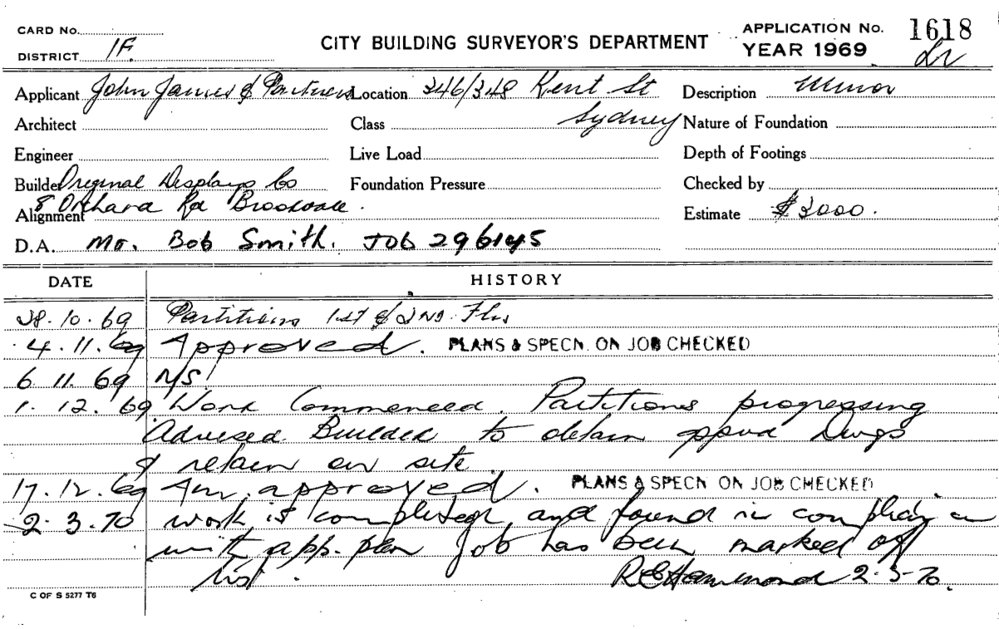 CARD No.
CITY BUILDING SURVEYOR'S DEPARTMENT
APPLICATION No. 1618
DISTRICT 1F.
YEAR 1969
Applicant John James & Partners
Location 346/348 Kent St
Sydney
Description Minor
Architect
Class
Nature of Foundation
Engineer
Live Load
Depth of Footings
Builder Original Displays Co
Foundation Pressure
Checked by
Alignment 8 Orchard Rd Brookvale.
Estimate $3000.
D.A. Mr. Bob Smith. Job 296145
DATE HISTORY
28.10.69 Partitions 1st & 2nd Flrs
4.11.69 Approved. PLANS & SPECN. ON JOB CHECKED
6 11 69 N/S.
1.12.69 Work Commenced. Partitions progressing
Advised Builder to obtain Dwgs
& retain on site.
17.12.69 Am. approved. PLANS & SPECN ON JOB CHECKED
2.3.70 work is completed, and found in
with app. plan Job has been marked off
list. 2.3.70.
C OF S 5277 T6